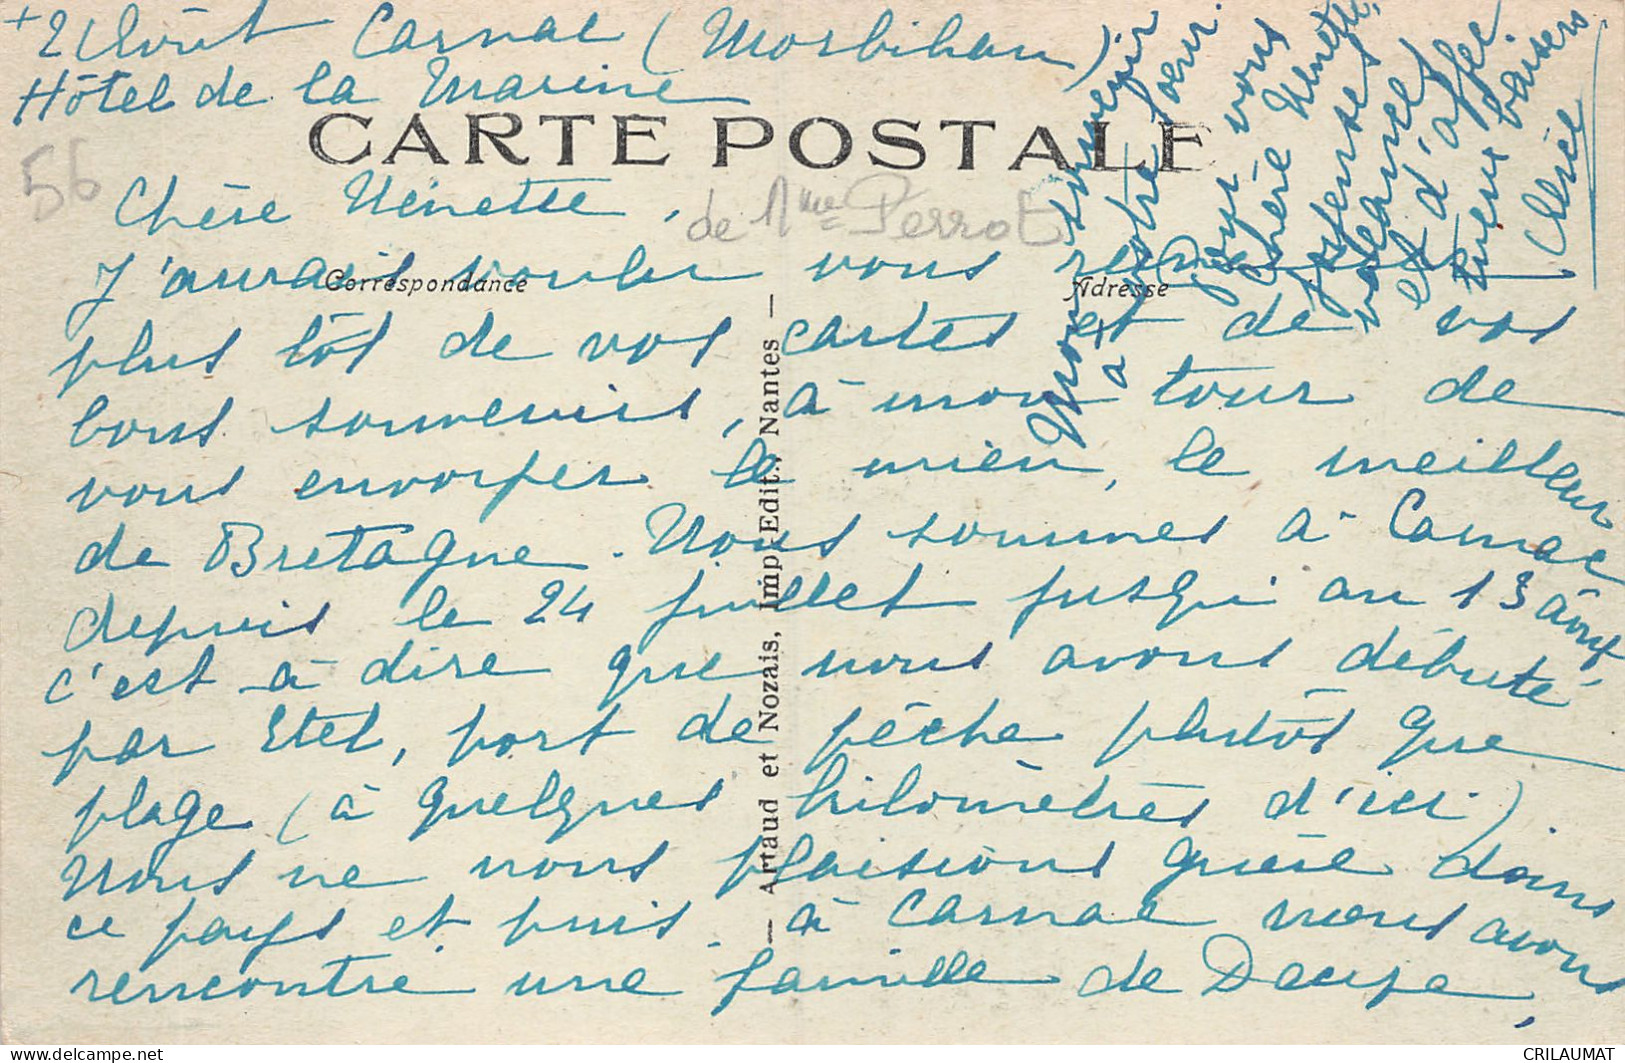 2 Août Carnac (Morbihan)
Hôtel de la Marine
CARTE POSTALE
56
Chère Nénette,
de Mme Perrot
J'aurais voulu vous
Correspondance
Adresse
plus tôt de vos cartes et de vos
bons souvenirs, à mon tour de
vous envoyer le mien, le meilleur
de Bretagne. Nous sommes à Carnac
depuis le 24 juillet jusqu'au 13 août,
c'est à dire que nous avons débuté
par Etel, port de pêche plutôt que
plage (à quelques kilomètres d'ici)
Nous ne nous plaisions guère dans
ce pays et puis à Carnac nous avons
rencontré une famille de
— Artaud et Nozais, Imp.-Edit., Nantes —
Mon souvenir
à votre sœur.
Pour vous
chère Nénette
et d'affec.
tueux baisers
CRILAUMAT
www.delcampe.net